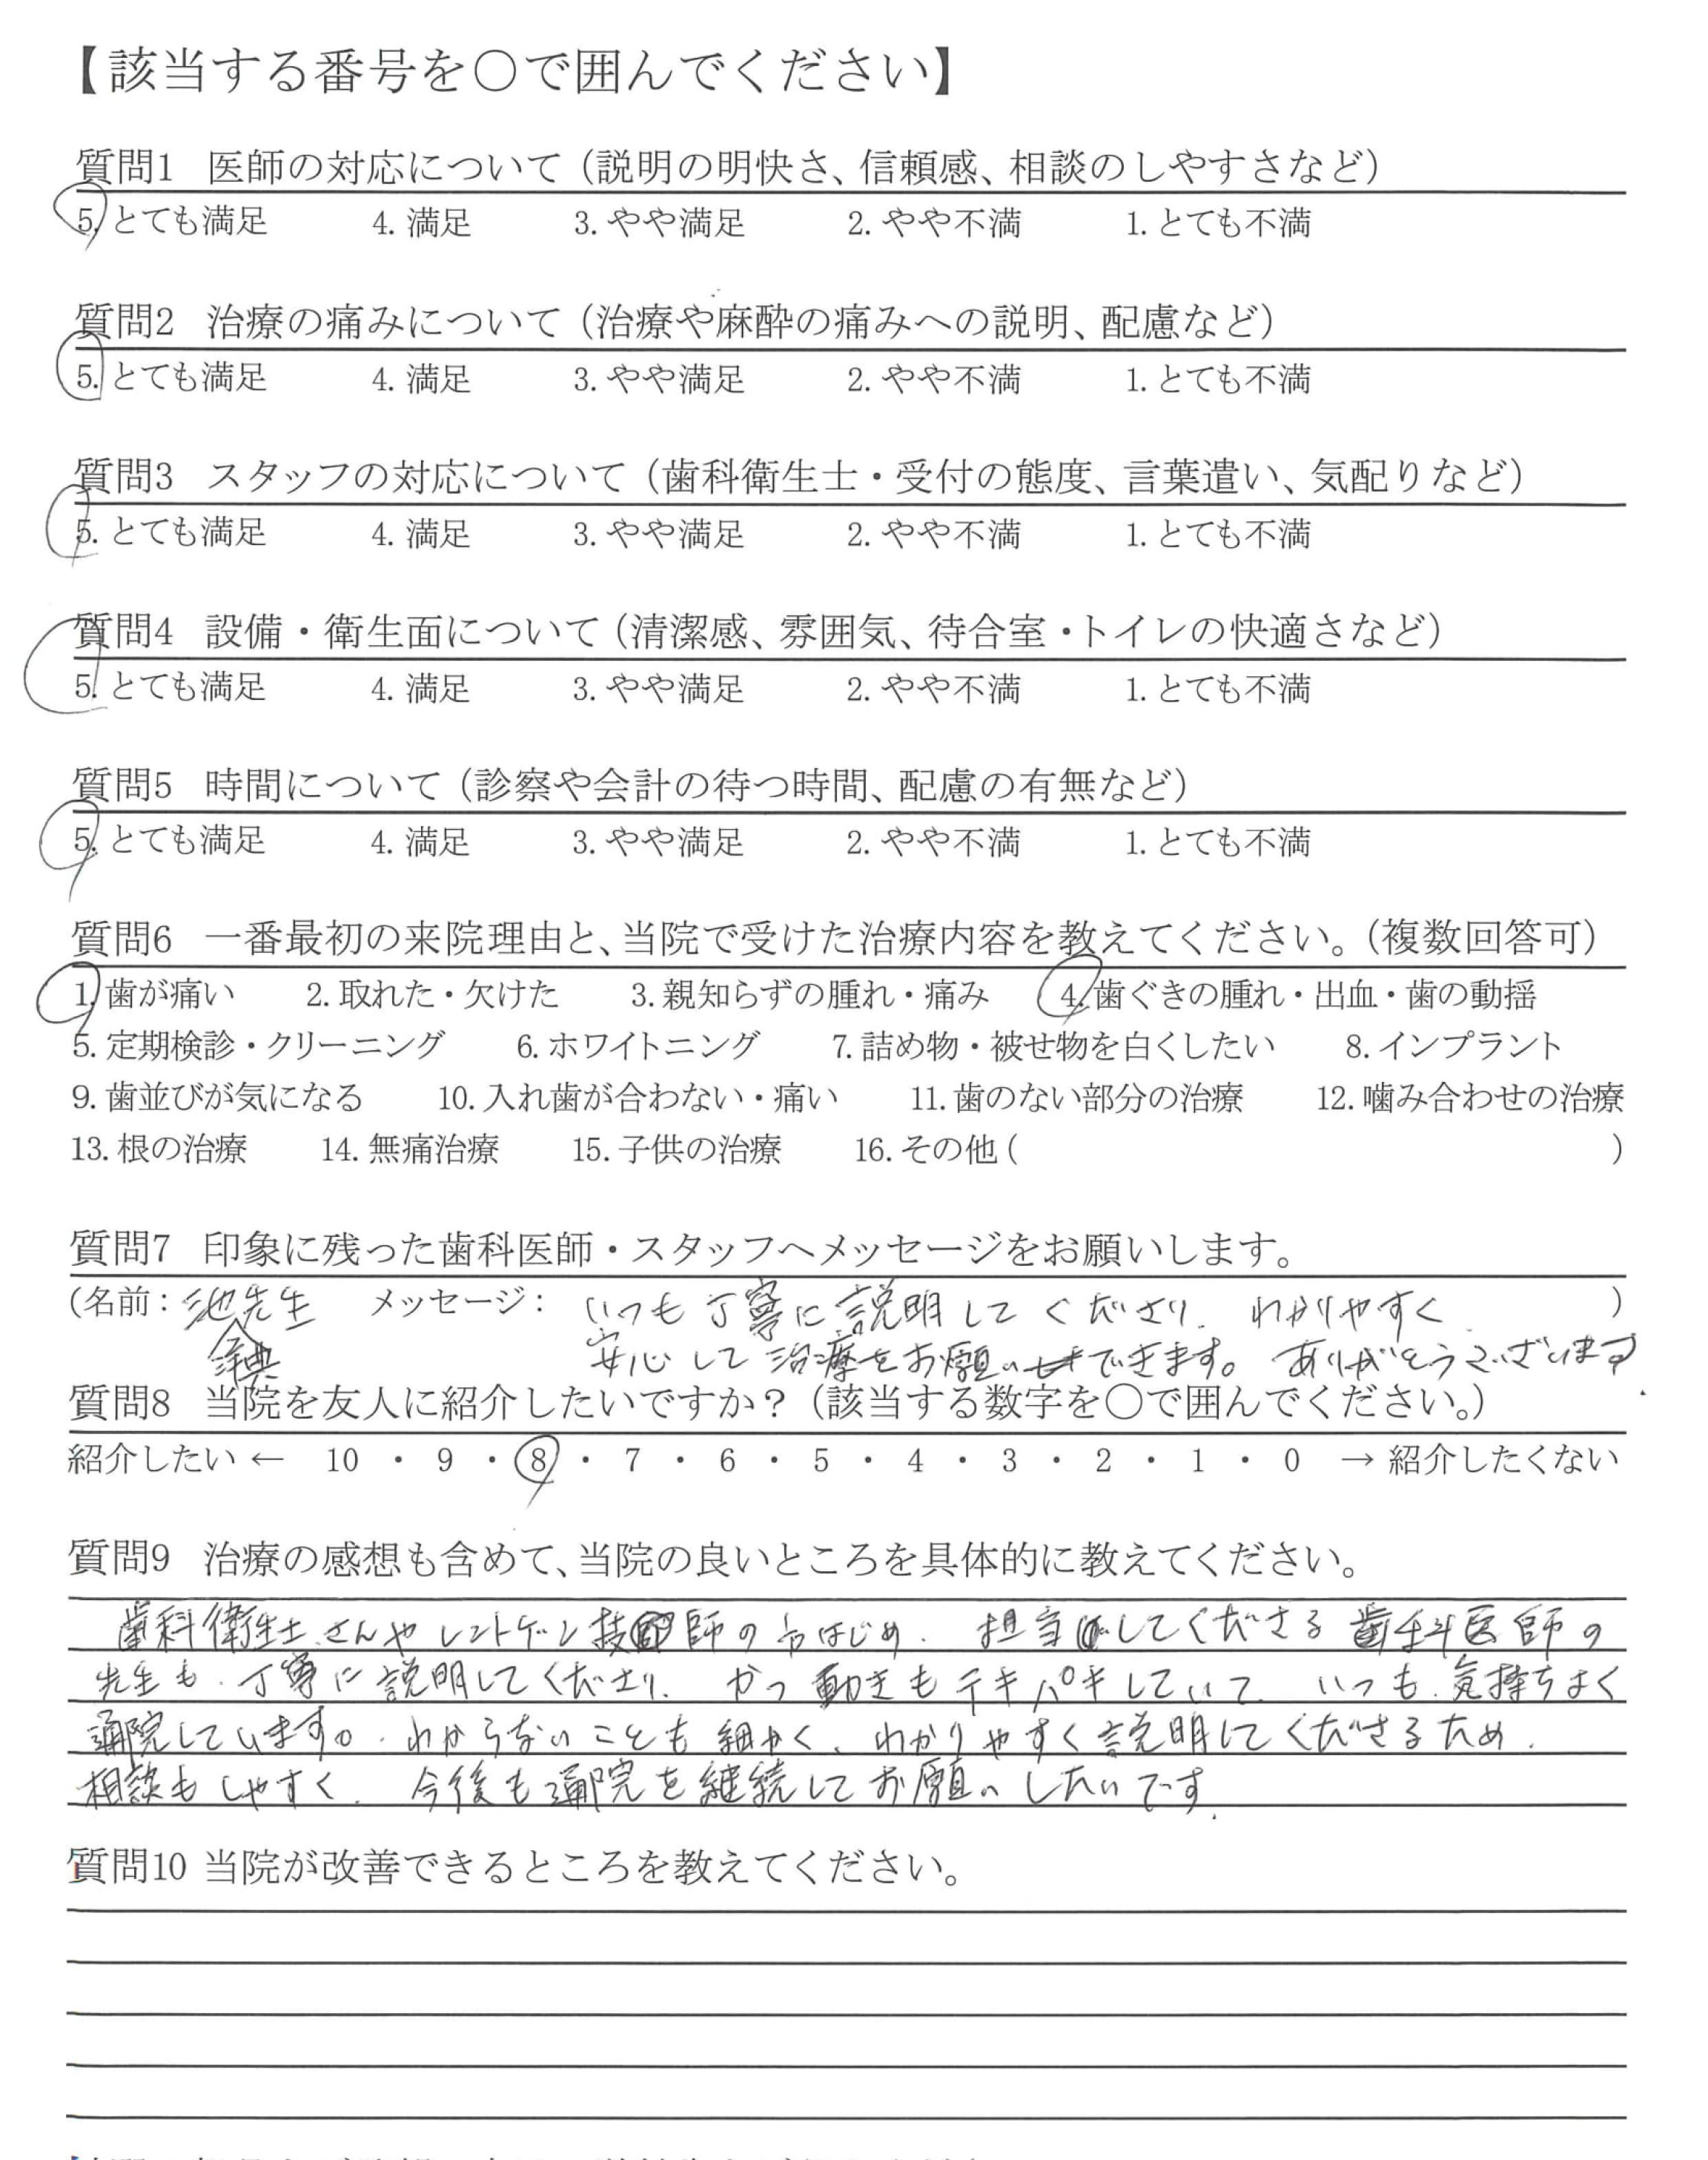 【該当する番号を○で囲んでください】
質問1 医師の対応について（説明の明快さ、信頼感、相談のしやすさなど）
5. とても満足 4. 満足 3. やや満足 2. やや不満 1. とても不満
質問2 治療の痛みについて（治療や麻酔の痛みへの説明、配慮など）
5. とても満足 4. 満足 3. やや満足 2. やや不満 1. とても不満
質問3 スタッフの対応について（歯科衛生士・受付の態度、言葉遣い、気配りなど）
5. とても満足 4. 満足 3. やや満足 2. やや不満 1. とても不満
質問4 設備・衛生面について（清潔感、雰囲気、待合室・トイレの快適さなど）
5. とても満足 4. 満足 3. やや満足 2. やや不満 1. とても不満
質問5 時間について（診察や会計の待つ時間、配慮の有無など）
5. とても満足 4. 満足 3. やや満足 2. やや不満 1. とても不満
質問6 一番最初の来院理由と、当院で受けた治療内容を教えてください。（複数回答可）
1. 歯が痛い 2. 取れた・欠けた 3. 親知らずの腫れ・痛み 4. 歯ぐきの腫れ・出血・歯の動揺
5. 定期検診・クリーニング 6. ホワイトニング 7. 詰め物・被せ物を白くしたい 8. インプラント
9. 歯並びが気になる 10. 入れ歯が合わない・痛い 11. 歯のない部分の治療 12. 噛み合わせの治療
13. 根の治療 14. 無痛治療 15. 子供の治療 16. その他 ( )
質問7 印象に残った歯科医師・スタッフへメッセージをお願いします。
(名前： 池先生 メッセージ： いつも丁寧に説明してくださり、わかりやすく )
安心して治療をお願いできます。ありがとうございます
質問8 当院を友人に紹介したいですか？（該当する数字を○で囲んでください。）
紹介したい ← 10 ・ 9 ・ 8 ・ 7 ・ 6 ・ 5 ・ 4 ・ 3 ・ 2 ・ 1 ・ 0 → 紹介したくない
質問9 治療の感想も含めて、当院の良いところを具体的に教えてください。
歯科衛生士さんやレントゲン技師の方はじめ、担当してくださる歯科医師の
先生も、丁寧に説明してくださり、かつ動きもテキパキしていて、いつも気持ちよく
通院しています。わからないことも細かく、わかりやすく説明してくださるため、
相談もしやすく、今後も通院を継続してお願いしたいです。
質問10 当院が改善できるところを教えてください。